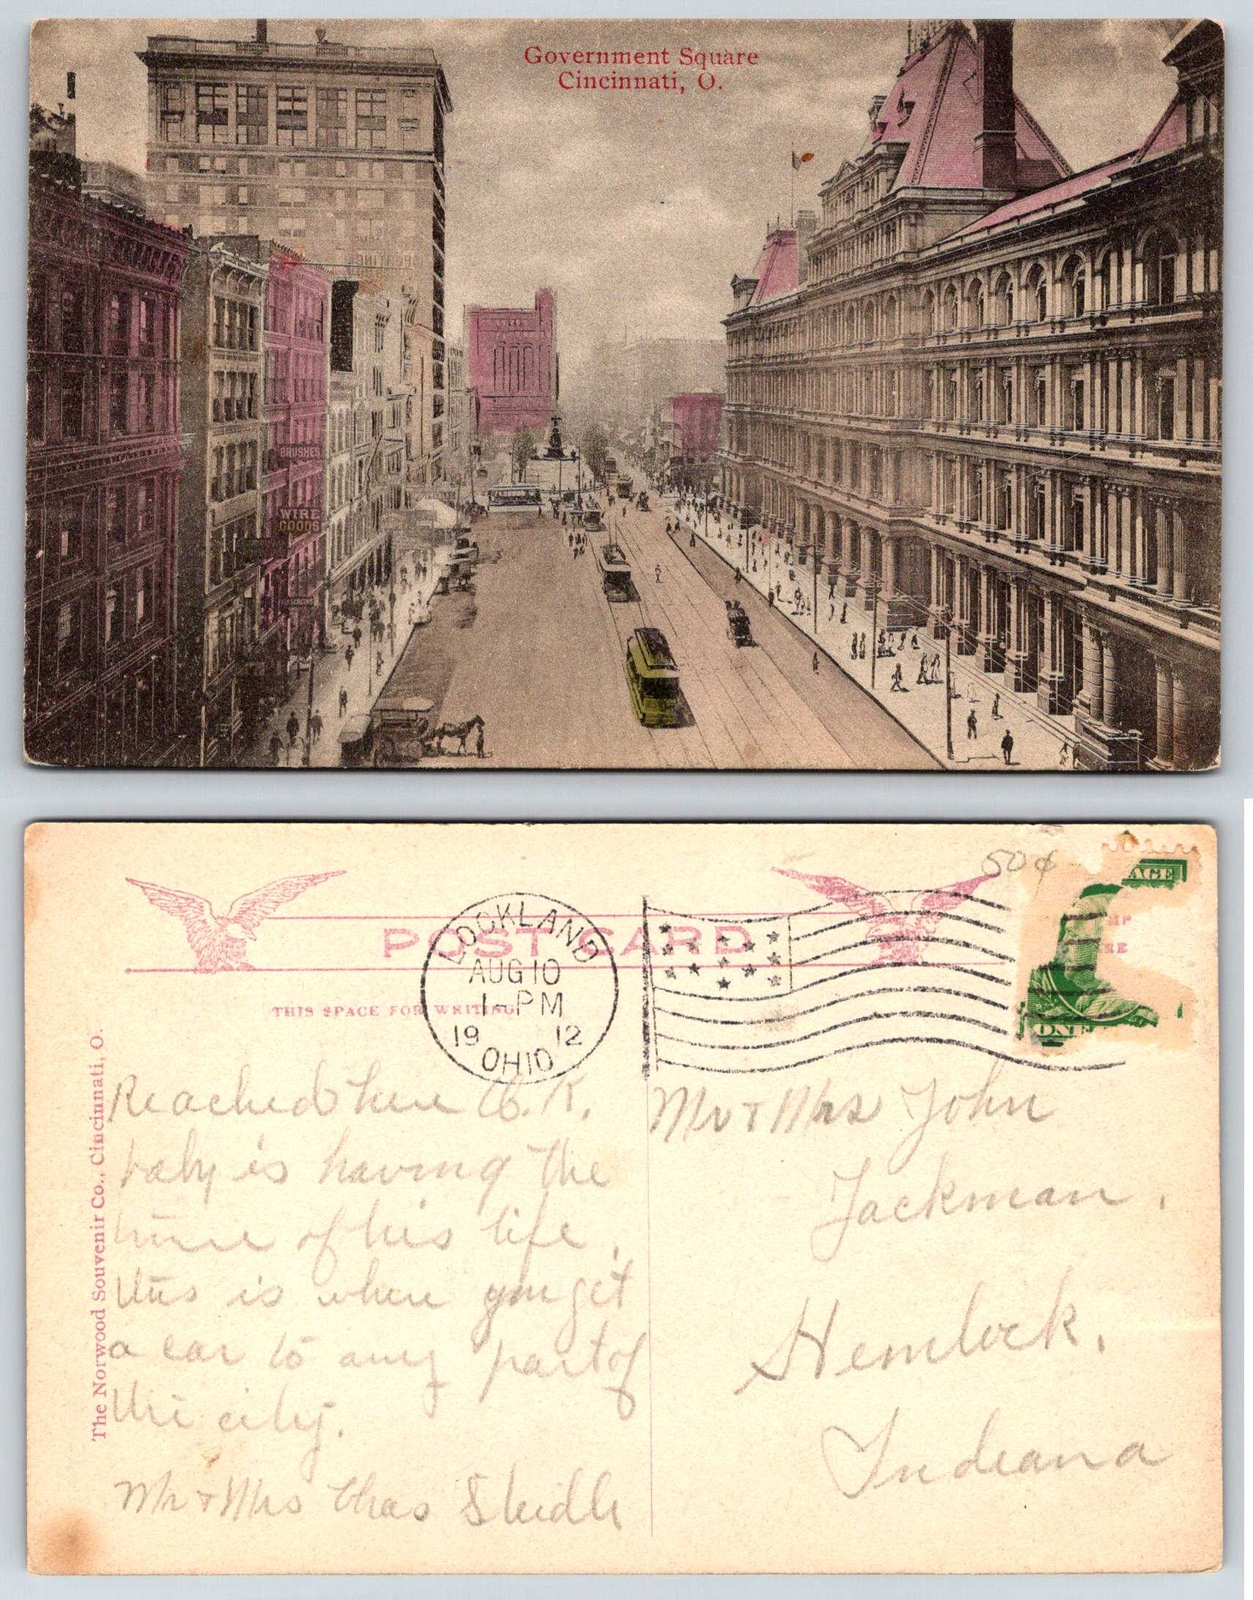 Government Square
Cincinnati, O.
BRUSHES
WIRE
GOODS
50¢
AGE
POST CARD
LOCKLAND
AUG 10
1-PM
1912
OHIO
MP
RE
ONE
THIS SPACE FOR WRITING
The Norwood Souvenir Co., Cincinnati, O.
Reached here O.K.
baby is having the
time of his life.
this is where you get
a car to any part of
the city.
Mr + Mrs Chas
Mr + Mrs John
Jackman.
Hemlock,
Indiana